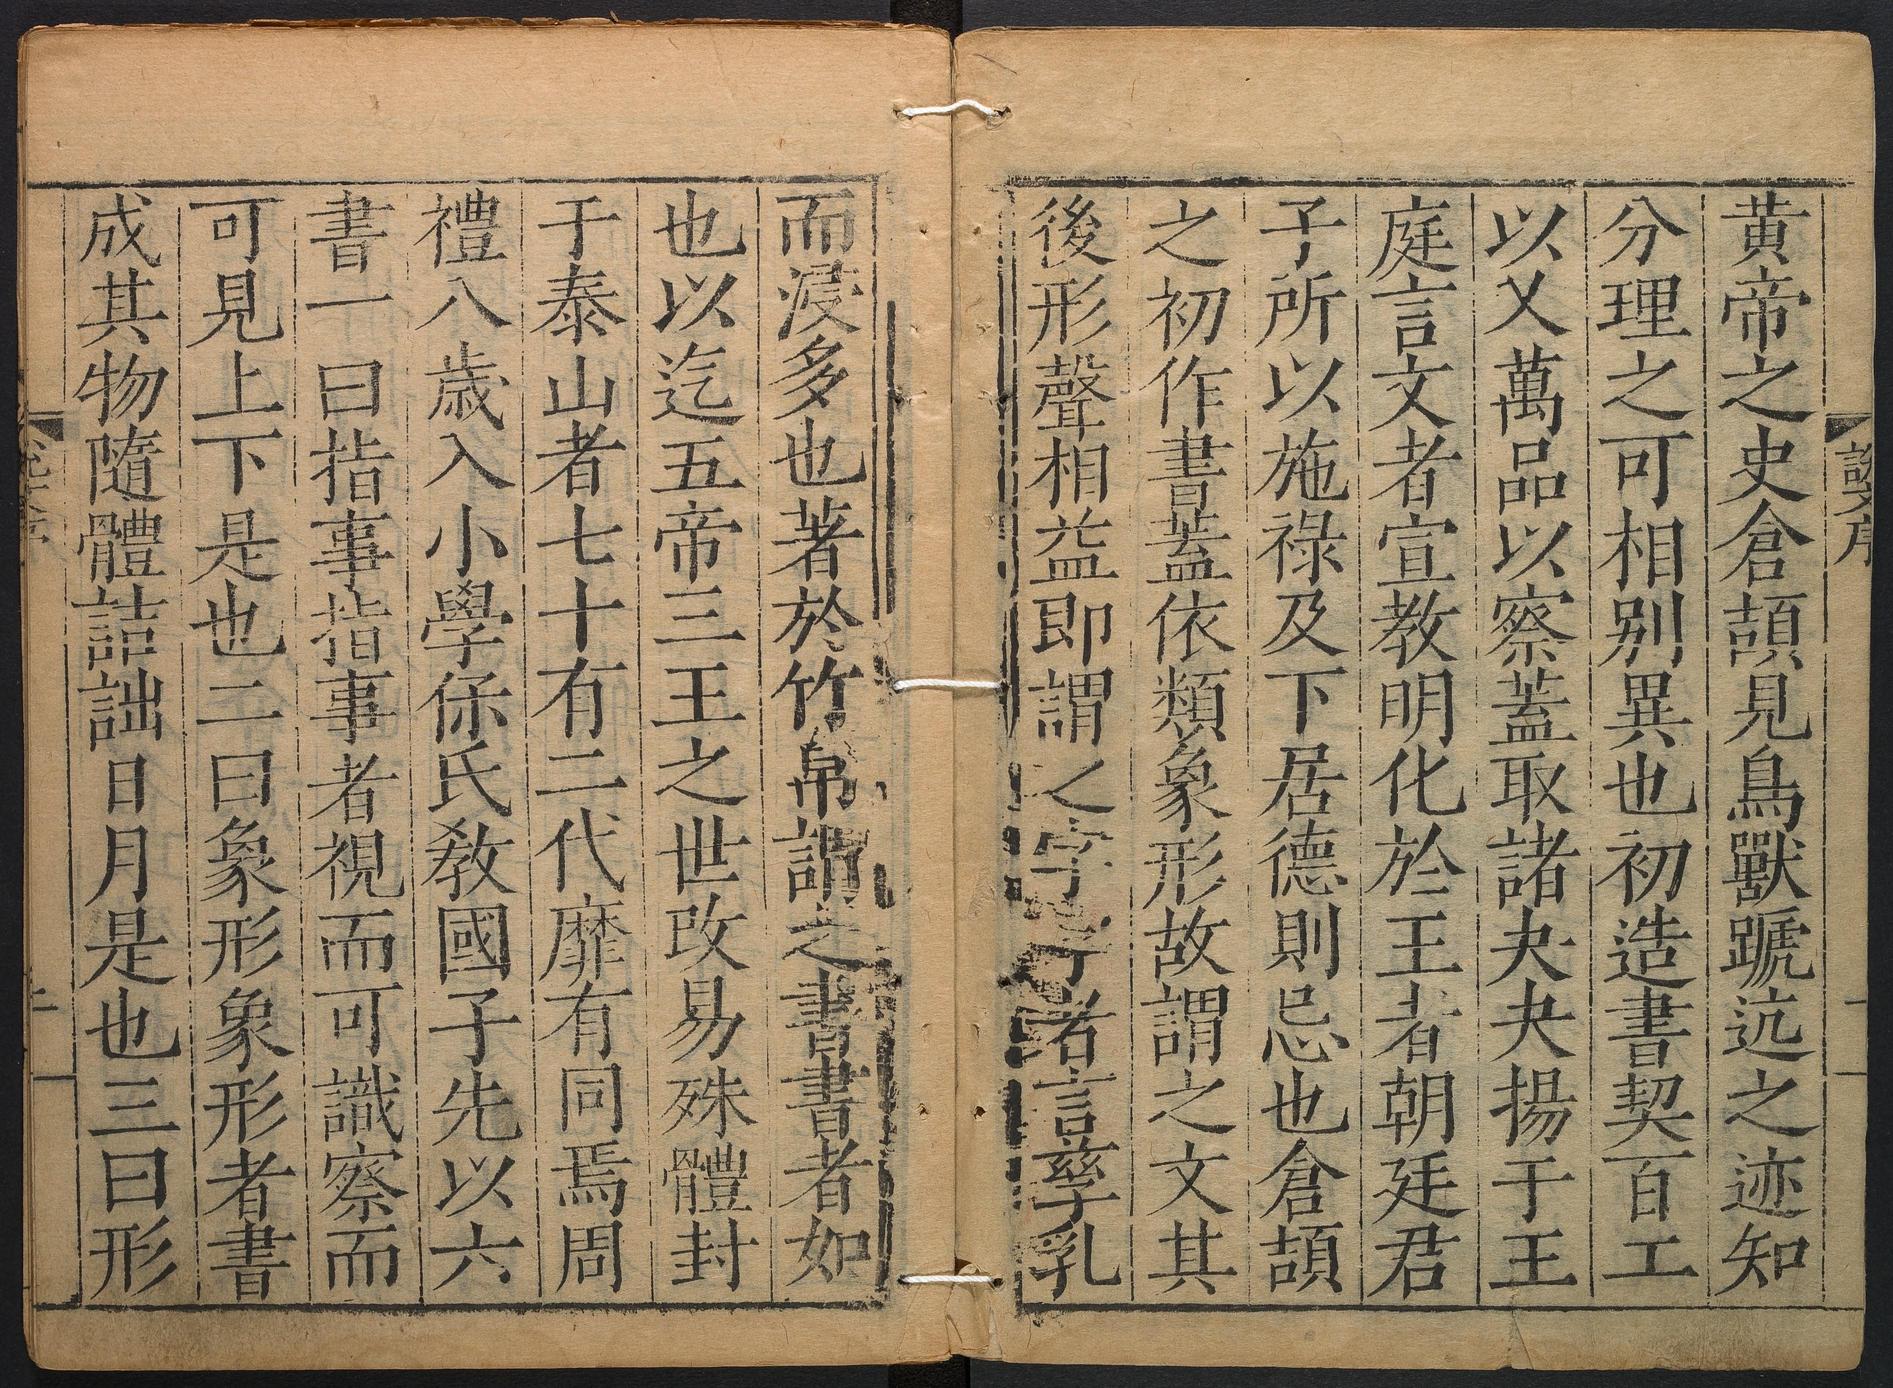 說文序
黃帝之史倉頡見鳥獸蹏迒之迹知
分理之可相別異也初造書契百工
以乂萬品以察蓋取諸夬夬揚于王
庭言文者宣教明化於王者朝廷君
子所以施祿及下居德則忌也倉頡
之初作書蓋依類象形故謂之文其
後形聲相益即謂之字字者言孳乳
而浸多也著於竹帛謂之書書者如
也以迄五帝三王之世改易殊體封
于泰山者七十有二代靡有同焉周
禮八歲入小學保氏教國子先以六
書一曰指事指事者視而可識察而
可見上下是也二曰象形象形者書
成其物隨體詰詘日月是也三曰形